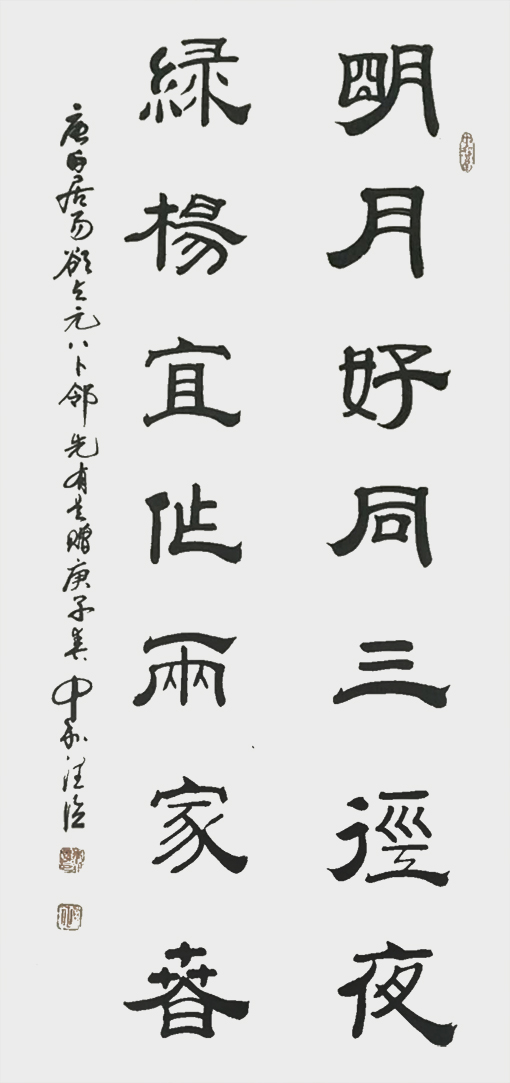 明月好同三徑夜
綠楊宜作兩家春
唐白居易欲与元八卜邻先有是赠庚子春中和